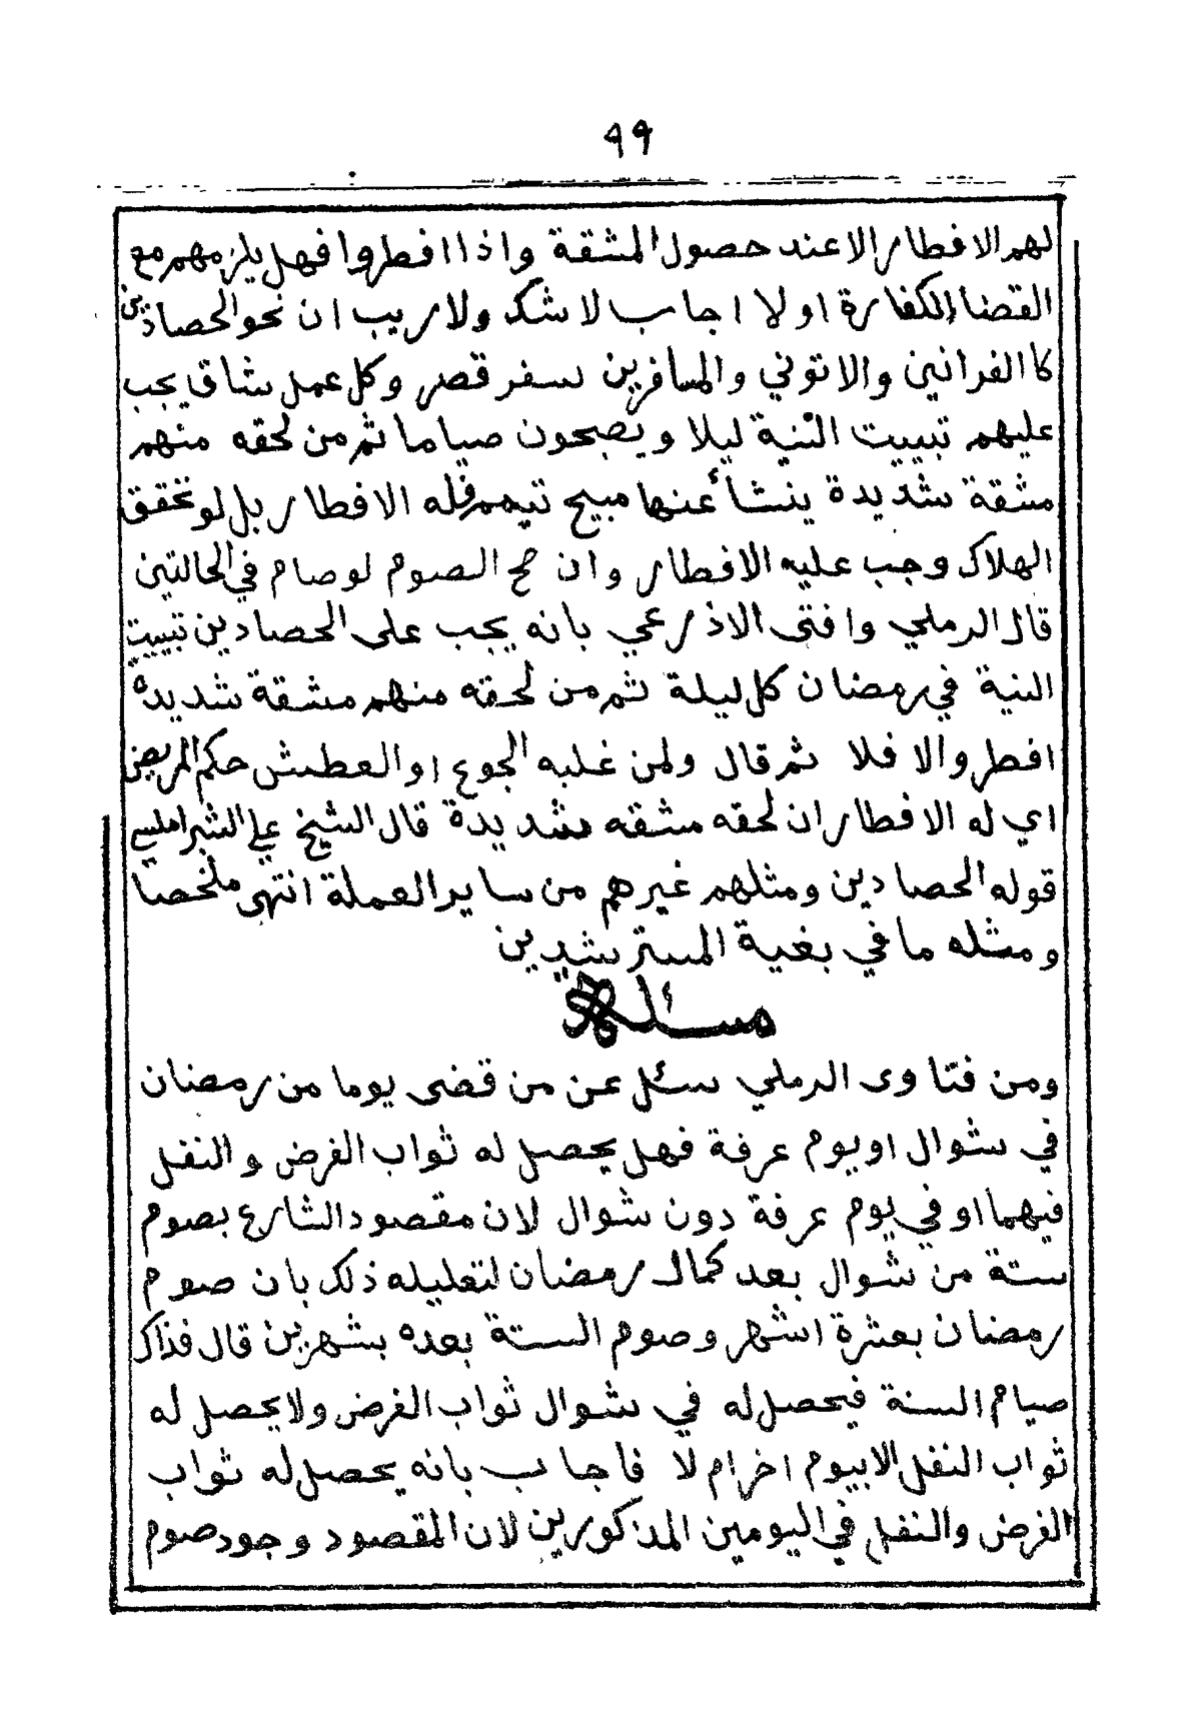 ٩٩
لهم الافطار الا عند حصول المشقة واذا افطروا فهل يلزمهم مع
القضا الكفارة او لا اجاب لا شك ولا ريب ان نحو الحصادين
كا الفرانين والاتوني والمسافرين سفر قصر وكل عمل شاق يجب
عليهم تبييت النية ليلا ويصبحون صياما ثم من لحقه منهم
مشقة شديدة ينشأ عنها مبيح تيمم فله الافطار بل لو تحقق
الهلاك وجب عليه الافطار وان صح الصوم لو صام في الحالتين
قال الرملي وافتى الاذرعي بانه يجب على الحصادين تبييت
النية في رمضان كل ليلة ثم من لحقه منهم مشقة شديده
افطر والا فلا ثم قال ولمن غلبه الجوع او العطش حكم المريض
اي له الافطار ان لحقه مشقه شديدة قال الشيخ علي الشبراملسي
قوله الحصادين ومثلهم غيرهم من ساير العملة انتهى ملخصا
ومثله ما في بغية المسترشدين
مسئلة
ومن فتاوى الرملي سئل عن من قضى يوما من رمضان
في شوال او يوم عرفة فهل يحصل له ثواب الفرض والنفل
فيهما او في يوم عرفة دون شوال لان مقصود الشارع بصوم
ستة من شوال بعد كمال رمضان لتعليله ذلك بان صوم
رمضان بعشرة اشهر وصوم الستة بعده بشهرين قال فذاك
صيام السنة فيحصل له في شوال ثواب الفرض ولا يحصل له
ثواب النفل الا بيوم اخر ام لا فاجاب بانه يحصل له ثواب
الفرض والنفل في اليومين المذكورين لان المقصود وجود صوم